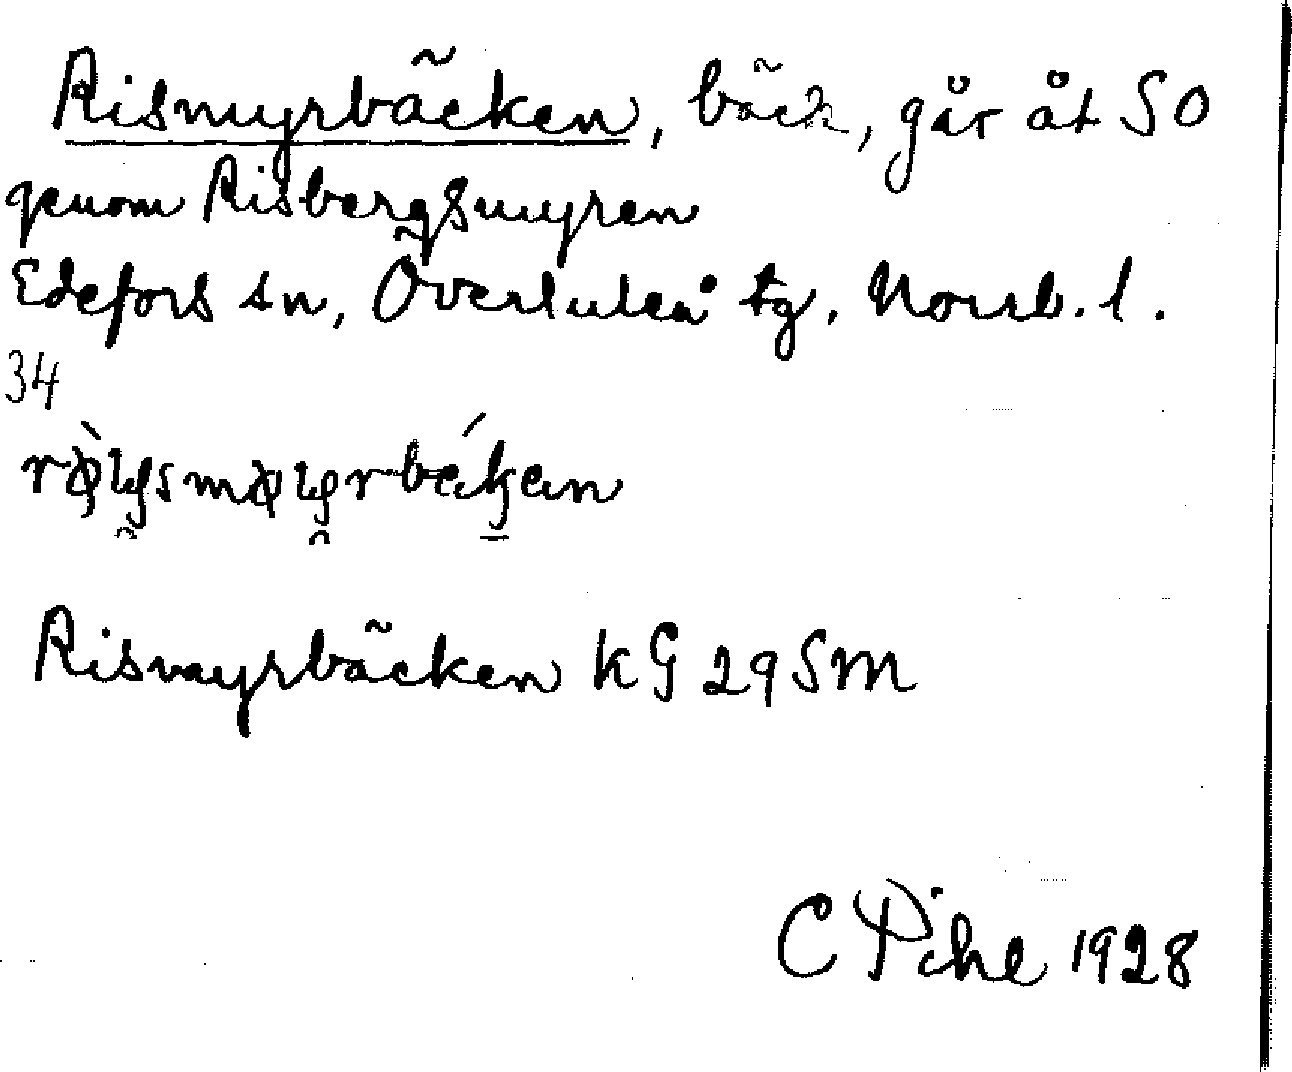 Rismyrbäcken, bäck, går åt SO
genom Risbergsmyren
Edefors sn, Överluleå tg, Norrb. l.
34
Rismyrbäcken KG 29 SM
C Pihl 1928